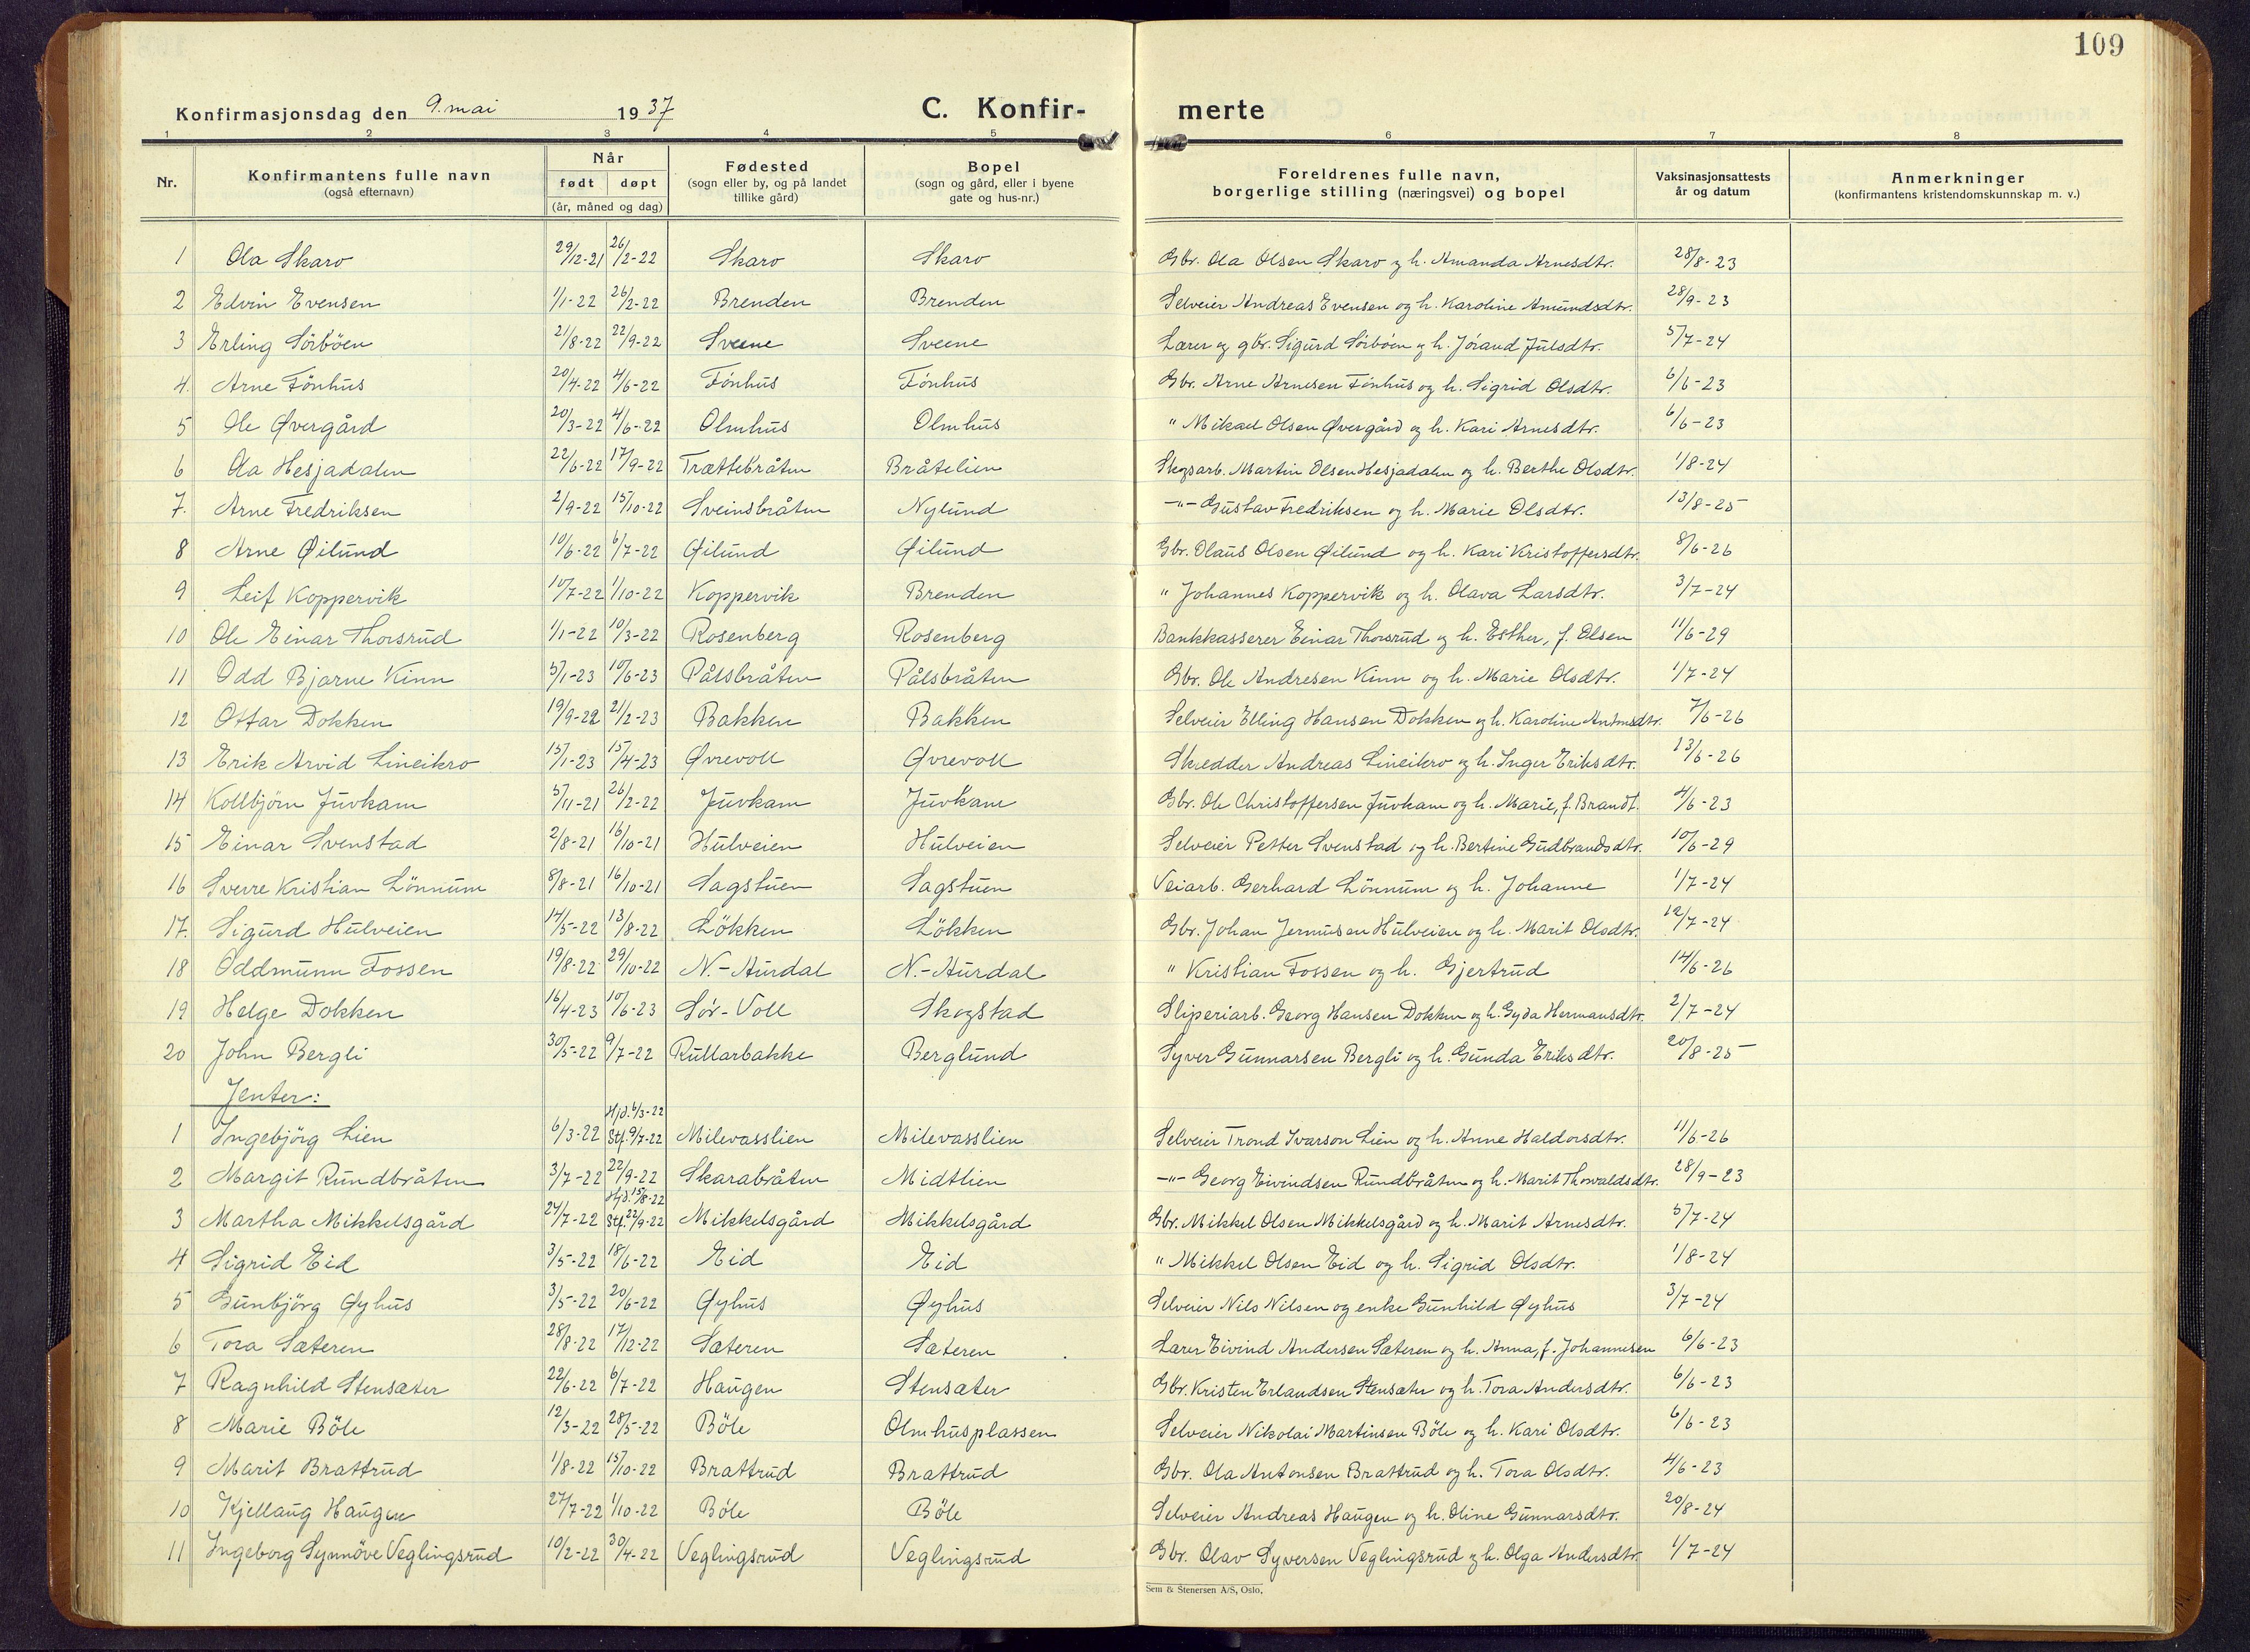 109
Konfirmasjonsdag den 9. mai 1937 C. Konfir- merte
1 2 3 4 5 6 7 8
Nr. Konfirmantens fulle navn (også efternavn) Når født døpt (år, måned og dag) Fødested (sogn eller by, og på landet tillike gård) Bopel (sogn og gård, eller i byene gate og hus-nr.) Foreldrenes fulle navn, borgerlige stilling (næringsvei) og bopel Vaksinasjonsattests år og datum Anmerkninger (konfirmantens kristendomskunnskap m. v.)
1 Ola Skaro 29/12-21 26/2-22 Skaro Skaro Gbr. Ola Olsen Skaro og h. Amanda Arnesdtr. 28/8-23
2 Edvin Evensen 1/1-22 26/2-22 Brenden Brenden Selveier Andreas Evensen og h. Karoline Amundsdtr. 28/9-23
3 Erling Sörböen 21/8-22 22/9-22 Sveene Sveene Lærer og gbr. Sigurd Sörböen og h. Jörand Julsdtr. 5/7-24
4. Arne Fönhus 20/4-22 4/6-22 Fönhus Fönhus Gbr. Arne Arnesen Fönhus og h. Sigrid Olsdtr. 6/6-23
5 Ole Øvergård 20/3-22 4/6-22 Olmhus Olmhus " Mikael Olsen Øvergård og h. Kari Arnesdtr. 6/6-23
6 Ola Hesjadalen 22/6-22 17/9-22 Trættebråten Bråtelien Skogsarb. Martin Olsen Hesjadalen og h. Berthe Olsdtr. 1/8-24
7. Arne Fredriksen 2/9-22 15/10-22 Sveinsbråten Nylund -"- Gustav Fredriksen og h. Marie Olsdtr. 13/8-25
8 Arne Øilund 10/6-22 6/7-22 Øilund Øilund Gbr. Olaus Olsen Øilund og h. Kari Kristoffersdtr. 8/6-26
9 Leif Koppervik 10/7-22 1/10-22 Koppervik Brenden " Johannes Koppervik og h. Olava Larsdtr. 3/7-24
10 Ole Einar Thorsrud 1/1-22 10/3-22 Rosenberg Rosenberg Bankkasserer Einar Thorsrud og h. Esther, f. Olsen 11/6-29
11 Odd Bjarne Kinn 5/1-23 10/6-23 Pålsbråten Pålsbråten Gbr. Ole Andresen Kinn og h. Marie Olsdtr. 1/7-24
12 Ottar Dokken 19/9-22 21/2-23 Bakken Bakken Selveier Elling Hansen Dokken og h. Karoline Antonsdtr. 7/6-26
13 Erik Arvid Lineikro 15/1-23 15/4-23 Øvrevoll Øvrevoll Skredder Andreas Lineikro og h. Inger Eriksdtr. 13/6-26
14 Kollbjörn Juvkam 5/11-21 26/2-22 Juvkam Juvkam Gbr. Ole Christoffersen Juvkam og h. Marie, f. Brandt. 4/6-23
15 Einar Svenstad 2/8-21 16/10-21 Hulveien Hulveien Selveier Petter Svenstad og h. Bertine Gudbrandsdtr. 10/6-29
16 Sverre Kristian Lönnum 8/8-21 16/10-21 Sagstuen Sagstuen Veiarb. Gerhard Lönnum og h. Johanne 1/7-24
17. Sigurd Hulveien 14/5-22 13/8-22 Lökken Lökken Gbr. Johan Jermusen Hulveien og h. Marit Olsdtr. 12/7-24
18 Oddmunn Fossen 19/8-22 29/10-22 N.-Aurdal N.-Aurdal " Kristian Fossen og h. Gjertrud 14/6-26
19 Helge Dokken 16/4-23 10/6-23 Sör-Voll Skogstad Sliperiarb. Georg Hansen Dokken og h. Gyda Hermansdtr. 2/7-24
20 John Bergli 30/5-22 9/7-22 Rullarbakke Berglund Syver Gunnarsen Bergli og h. Gunda Eriksdtr. 20/8-25
Jenter:
1 Ingebjörg Lien 6/3-22 Hjd. 6/3-22 Stf. 9/7-22 Milevasslien Milevasslien Selveier Trond Ivarson Lien og h. Anne Haldorsdtr. 11/6-26
2 Margit Rundbråten 3/7-22 22/9-22 Skarabråten Midtlien -"- Georg Eivindsen Rundbråten og h. Marit Thorvaldsdtr. 28/9-23
3 Martha Mikkelsgård 24/7-22 Hjd. 15/8-22 Stf. 22/9-22 Mikkelsgård Mikkelsgård Gbr. Mikkel Olsen Mikkelsgård og h. Marit Arnesdtr. 5/7-24
4 Sigrid Eid 3/5-22 18/6-22 Eid Eid " Mikkel Olsen Eid og h. Sigrid Olsdtr. 1/8-24
5 Gunbjörg Øyhus 3/5-22 20/6-22 Øyhus Øyhus Selveier Nils Nilsen og enke Gunhild Øyhus 3/7-24
6 Tora Sæteren 28/8-22 17/12-22 Sæteren Sæteren Lærer Eivind Andersen Sæteren og h. Anna, f. Johannesen 6/6-23
7 Ragnhild Stensæter 22/6-22 6/7-22 Haugen Stensæter Gbr. Kristen Erlandsen Stensæter og h. Tora Andersdtr. 6/6-23
8 Marie Böle 12/3-22 28/5-22 Böle Olmhusplassen Selveier Nikolai Martinsen Böle og h. Kari Olsdtr. 6/6-23
9 Marit Brattrud 1/8-22 15/10-22 Brattrud Brattrud Gbr. Ola Antonsen Brattrud og h. Tora Olsdtr. 4/6-23
10 Kjellaug Haugen 27/7-22 1/10-22 Böle Böle Selveier Andreas Haugen og h. Oline Gunnarsdtr. 20/8-24
11 Ingeborg Synnöve Veglingsrud 10/2-22 30/4-22 Veglingsrud Veglingsrud Gbr. Olav Syversen Veglingsrud og h. Olga Andersdtr. 1/7-24
Sem & Stenersen A/S, Oslo.